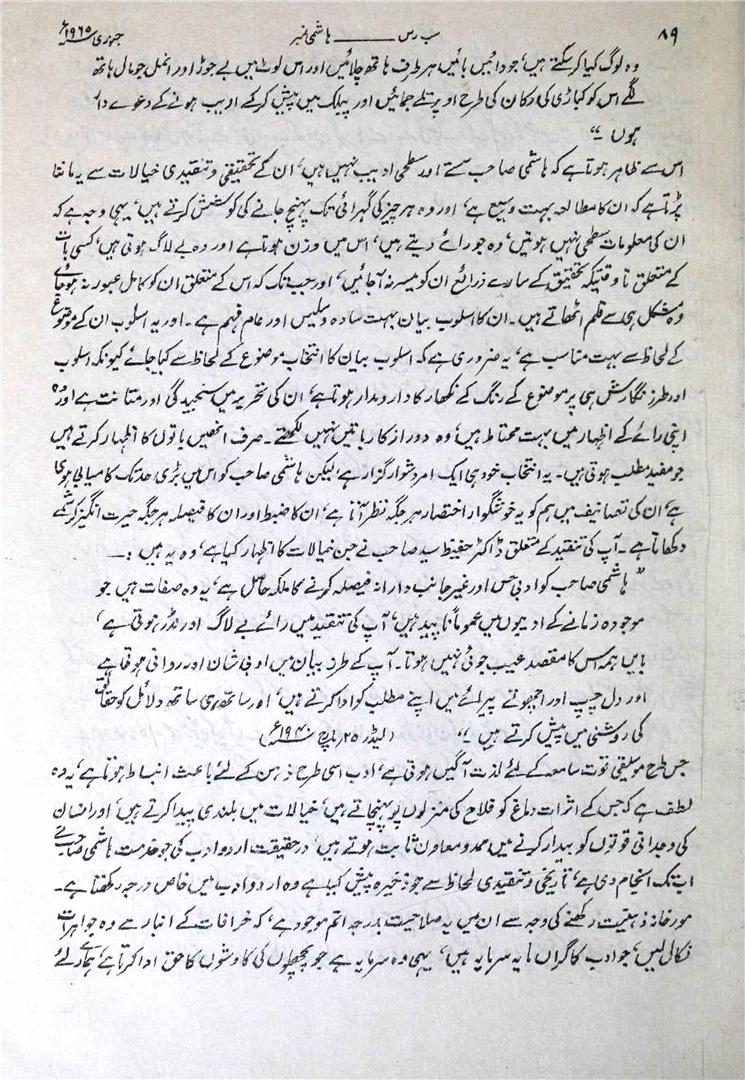 ۸۹ سب رس ـــــــ ہاشمی نمبر جنوری ۱۹۶۵ء
وہ لوگ کیا کرسکتے ہیں، جو دائیں بائیں ہر طرف ہاتھ چلائیں اور اس لوٹ میں بے جوڑ اور انمل جو مال ہاتھ
لگے اس کو کباڑی کی دوکان کی طرح اوپر تلے جمائیں اور پبلک میں پیش کرکے ادیب ہونے کے دعوے دار
ہوں ۔"
اس سے ظاہر ہوتا ہے کہ ہاشمی صاحب سستے اور سطحی ادیب نہیں ہیں، ان کے تحقیقی و تنقیدی خیالات سے یہ ماننا
پڑتا ہے کہ ان کا مطالعہ بہت وسیع ہے، اور وہ ہر چیز کی گہرائی تک پہنچ جانے کی کوشش کرتے ہیں، یہی وجہ ہے کہ
ان کی معلومات سطحی نہیں ہوتیں، وہ جو رائے دیتے ہیں، اس میں وزن ہوتا ہے اور وہ بے لاگ ہوتی ہیں، کسی بات
کے متعلق تا وقتیکہ تحقیق کے سارے ذرائع ان کو میسر نہ آجائیں، اور جب تک کہ اس کے متعلق ان کو کامل عبور نہ ہوجائے
وہ مشکل ہی سے قلم اٹھاتے ہیں۔ ان کا اسلوب بیان بہت سادہ و سلیس اور عام فہم ہے۔ اور یہ اسلوب ان کے موضوع
کے لحاظ سے بہت مناسب ہے، یہ ضروری ہے کہ اسلوب بیان کا انتخاب موضوع کے لحاظ سے کیا جائے کیونکہ اسلوب
اور طرز نگارش ہی پر موضوع کے رنگ کے نکھار کا دارومدار ہوتا ہے، ان کی تحریر میں سنجیدگی اور متانت ہے اور وہ
اپنی رائے کے اظہار میں بہت محتاط ہیں، وہ دور از کار باتیں نہیں لکھتے۔ صرف انھیں باتوں کا اظہار کرتے ہیں
جو مفید مطلب ہوتی ہیں۔ یہ انتخاب خود ہی ایک امر دشوار گزار ہے، لیکن ہاشمی صاحب کو اس میں بڑی حد تک کامیابی ہوئی
ہے، ان کی تصانیف میں ہم کو یہ خوشگوار اختصار ہر جگہ نظر آتا ہے، ان کا ضبط اور ان کا فیصلہ ہر جگہ حیرت انگیز کرشمے
دکھاتا ہے۔ آپ کی تنقید کے متعلق ڈاکٹر حفیظ سید صاحب نے جن خیالات کا اظہار کیا ہے، وہ یہ ہیں :۔
"ہاشمی صاحب کو ادبی حس اور غیر جانب دارانہ فیصلہ کرنے کا ملکہ حاصل ہے، یہ وہ صفات ہیں جو
موجودہ زمانے کے ادیبوں میں عموماً ناپید ہیں، آپ کی تنقید میں رائے بے لاگ اور نڈر ہوتی ہے،
بایں ہمہ اس کا مقصد عیب جوئی نہیں ہوتا۔ آپ کے طرز بیان میں ادبی شان اور روانی ہوتی ہے
اور دل چسپ اور اچھوتے پیرائے میں اپنے مطلب کو ادا کرتے ہیں، اور ساتھ ہی ساتھ دلائل کو حقائق
کی روشنی میں پیش کرتے ہیں ۔" (لیڈر ۲۵ مارچ ۱۹۴۰ء)
جس طرح موسیقی قوت سامعہ کے لئے لذت آگیں ہوتی ہے، ادب اسی طرح ذہن کے لئے باعث انبساط ہوتا ہے، یہ وہ
لطف ہے کہ جس کے اثرات دماغ کو فلاح کی منزلوں پر پہنچاتے ہیں، خیالات میں بلندی پیدا کرتے ہیں، اور انسان
کی وجدانی قوتوں کو بیدار کرنے میں ممد و معاون ثابت ہوتے ہیں، درحقیقت اردو ادب کی جو خدمت ہاشمی صاحب نے
اب تک انجام دی ہے، تاریخی و تنقیدی لحاظ سے جو ذخیرہ پیش کیا ہے وہ اردو ادب میں خاص درجہ رکھتا ہے۔
مورخانہ ذہنیت رکھنے کی وجہ سے ان میں یہ صلاحیت بدرجہ اتم موجود ہے، کہ خرافات کے انبار سے وہ جواہرات
نکال لیں، جو ادب کا گراں مایہ سرمایہ ہیں، یہی وہ سرمایہ ہے جو پچھلوں کی کاوشوں کا حق ادا کرتا ہے، ہمارے لئے